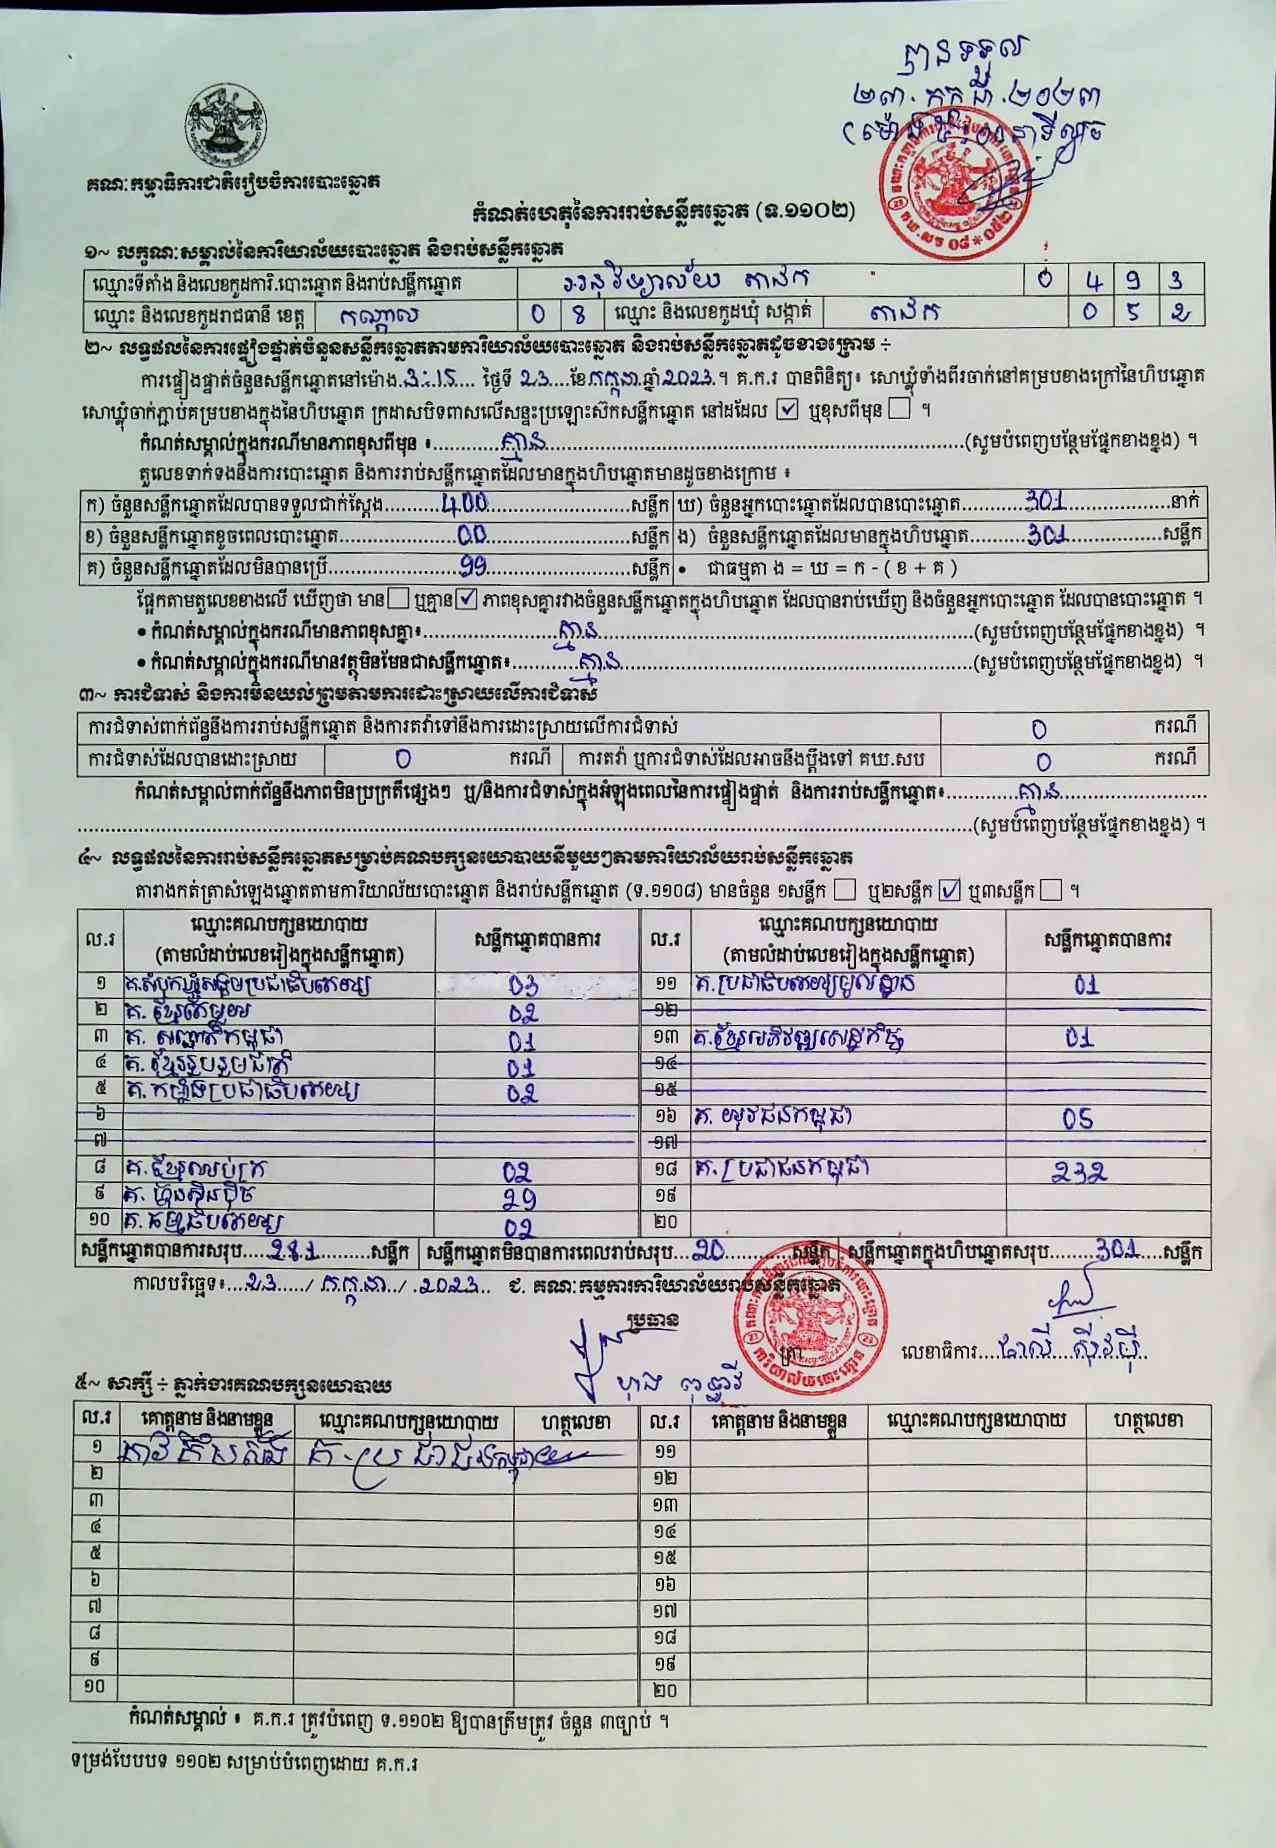 បានទទួល
២៣.កក្កដា.២០២៣
គណៈកម្មាធិការជាតិរៀបចំការបោះឆ្នោត
កំណត់ហេតុនៃការរាប់សន្លឹកឆ្នោត (ទ.១១០២)
១~ លក្ខណៈសម្គាល់នៃការិយាល័យបោះឆ្នោត និងរាប់សន្លឹកឆ្នោត
ឈ្មោះទីតាំង និងលេខកូដការិ.បោះឆ្នោត និងរាប់សន្លឹកឆ្នោត អនុវិទ្យាល័យ តាជក 0 4 9 3
ឈ្មោះ និងលេខកូដរាជធានី ខេត្ត កណ្តាល 0 8 ឈ្មោះ និងលេខកូដឃុំ សង្កាត់ តាជក 0 5 2
២~ លទ្ធផលនៃការផ្ទៀងផ្ទាត់ចំនួនសន្លឹកឆ្នោតតាមការិយាល័យបោះឆ្នោត និងរាប់សន្លឹកឆ្នោតដូចខាងក្រោម ÷
ការផ្ទៀងផ្ទាត់ចំនួនសន្លឹកឆ្នោតនៅម៉ោង.3:15.... ថ្ងៃទី 23....ខែកក្កដា.ឆ្នាំ2023.។ គ.ក.រ បានពិនិត្យ៖ សោឃ្លុំទាំងពីរចាក់នៅគម្របខាងក្រៅនៃហិបឆ្នោត
សោឃ្លុំចាក់ភ្ជាប់គម្របខាងក្នុងនៃហិបឆ្នោត ក្រដាសបិទពាសលើសន្ទះប្រឡោះស៊កសន្លឹកឆ្នោត នៅដដែល ☑ ឬខុសពីមុន ☐ ។
កំណត់សម្គាល់ក្នុងករណីមានភាពខុសពីមុន ៖............គ្មាន............(សូមបំពេញបន្ថែមផ្នែកខាងខ្នង) ។
តួលេខទាក់ទងនឹងការបោះឆ្នោត និងការរាប់សន្លឹកឆ្នោតដែលមានក្នុងហិបឆ្នោតមានដូចខាងក្រោម ៖
ក) ចំនួនសន្លឹកឆ្នោតដែលបានទទួលជាក់ស្តែង..........400..........សន្លឹក ឃ) ចំនួនអ្នកបោះឆ្នោតដែលបានបោះឆ្នោត..........301..........នាក់
ខ) ចំនួនសន្លឹកឆ្នោតខូចពេលបោះឆ្នោត..........00..........សន្លឹក ង) ចំនួនសន្លឹកឆ្នោតដែលមានក្នុងហិបឆ្នោត..........301..........សន្លឹក
គ) ចំនួនសន្លឹកឆ្នោតដែលមិនបានប្រើ..........99..........សន្លឹក • ជាធម្មតា ង = ឃ = ក - ( ខ + គ )
ផ្អែកតាមតួលេខខាងលើ ឃើញថា មាន ☐ ឬគ្មាន ☑ ភាពខុសគ្នារវាងចំនួនសន្លឹកឆ្នោតក្នុងហិបឆ្នោត ដែលបានរាប់ឃើញ និងចំនួនអ្នកបោះឆ្នោត ដែលបានបោះឆ្នោត ។
• កំណត់សម្គាល់ក្នុងករណីមានភាពខុសគ្នា៖............គ្មាន............(សូមបំពេញបន្ថែមផ្នែកខាងខ្នង) ។
• កំណត់សម្គាល់ក្នុងករណីមានវត្ថុមិនមែនជាសន្លឹកឆ្នោត៖............គ្មាន............(សូមបំពេញបន្ថែមផ្នែកខាងខ្នង) ។
៣~ ការជំទាស់ និងការមិនយល់ព្រមតាមការដោះស្រាយលើការជំទាស់
ការជំទាស់ពាក់ព័ន្ធនឹងការរាប់សន្លឹកឆ្នោត និងការតវ៉ាទៅនឹងការដោះស្រាយលើការជំទាស់ 0 ករណី
ការជំទាស់ដែលបានដោះស្រាយ 0 ករណី ការតវ៉ា ឬការជំទាស់ដែលអាចនឹងប្តឹងទៅ គឃ.សប 0 ករណី
កំណត់សម្គាល់ពាក់ព័ន្ធនឹងភាពមិនប្រក្រតីផ្សេងៗ ឬ/និងការជំទាស់ក្នុងអំឡុងពេលនៃការផ្ទៀងផ្ទាត់ និងការរាប់សន្លឹកឆ្នោត៖............គ្មាន............
............(សូមបំពេញបន្ថែមផ្នែកខាងខ្នង) ។
៤~ លទ្ធផលនៃការរាប់សន្លឹកឆ្នោតសម្រាប់គណបក្សនយោបាយនីមួយៗតាមការិយាល័យរាប់សន្លឹកឆ្នោត
តារាងកត់ត្រាសំឡេងឆ្នោតតាមការិយាល័យបោះឆ្នោត និងរាប់សន្លឹកឆ្នោត (ទ.១១០៨) មានចំនួន ១សន្លឹក ☐ ឬ២សន្លឹក ☑ ឬ៣សន្លឹក ☐ ។
ល.រ ឈ្មោះគណបក្សនយោបាយ (តាមលំដាប់លេខរៀងក្នុងសន្លឹកឆ្នោត) សន្លឹកឆ្នោតបានការ ល.រ ឈ្មោះគណបក្សនយោបាយ (តាមលំដាប់លេខរៀងក្នុងសន្លឹកឆ្នោត) សន្លឹកឆ្នោតបានការ
១ គ.សំបុកឃ្មុំសង្គមប្រជាធិបតេយ្យ 03 ១១ គ.ប្រជាធិបតេយ្យមូលដ្ឋាន 01
២ គ. ខ្មែរតែមួយ 02 ១២
៣ គ. សញ្ជាតិកម្ពុជា 01 ១៣ គ.ខ្មែរអភិវឌ្ឍសេដ្ឋកិច្ច 01
៤ គ. ខ្មែររួបរួមជាតិ 01 ១៤
៥ គ. កម្លាំងប្រជាធិបតេយ្យ 02 ១៥
៦ ១៦ គ. យុវជនកម្ពុជា 05
៧ ១៧
៨ គ. ខ្មែរឈប់ក្រ 02 ១៨ គ. ប្រជាជនកម្ពុជា 232
៩ គ. ហ្វ៊ុនស៊ិនប៉ិច 29 ១៩
១០ គ. ធម្មាធិបតេយ្យ 02 ២០
សន្លឹកឆ្នោតបានការសរុប.....281..........សន្លឹក សន្លឹកឆ្នោតមិនបានការពេលរាប់សរុប...20..........សន្លឹក សន្លឹកឆ្នោតក្នុងហិបឆ្នោតសរុប.........301.....សន្លឹក
កាលបរិច្ឆេទ៖...23...../ កក្កដា../ .2023.. ជ. គណៈកម្មការការិយាល័យរាប់សន្លឹកឆ្នោត
ប្រធាន
ត្រា
លេខាធិការ....
៥~ សាក្សី ÷ ភ្នាក់ងារគណបក្សនយោបាយ
ល.រ គោត្តនាម និងនាមខ្លួន ឈ្មោះគណបក្សនយោបាយ ហត្ថលេខា ល.រ គោត្តនាម និងនាមខ្លួន ឈ្មោះគណបក្សនយោបាយ ហត្ថលេខា
១ គ.ប្រជាជនកម្ពុជា ១១
២ ១២
៣ ១៣
៤ ១៤
៥ ១៥
៦ ១៦
៧ ១៧
៨ ១៨
៩ ១៩
១០ ២០
កំណត់សម្គាល់ ៖ គ.ក.រ ត្រូវបំពេញ ទ.១១០២ ឱ្យបានត្រឹមត្រូវ ចំនួន ៣ច្បាប់ ។
ទម្រង់បែបបទ ១១០២ សម្រាប់បំពេញដោយ គ.ក.រ